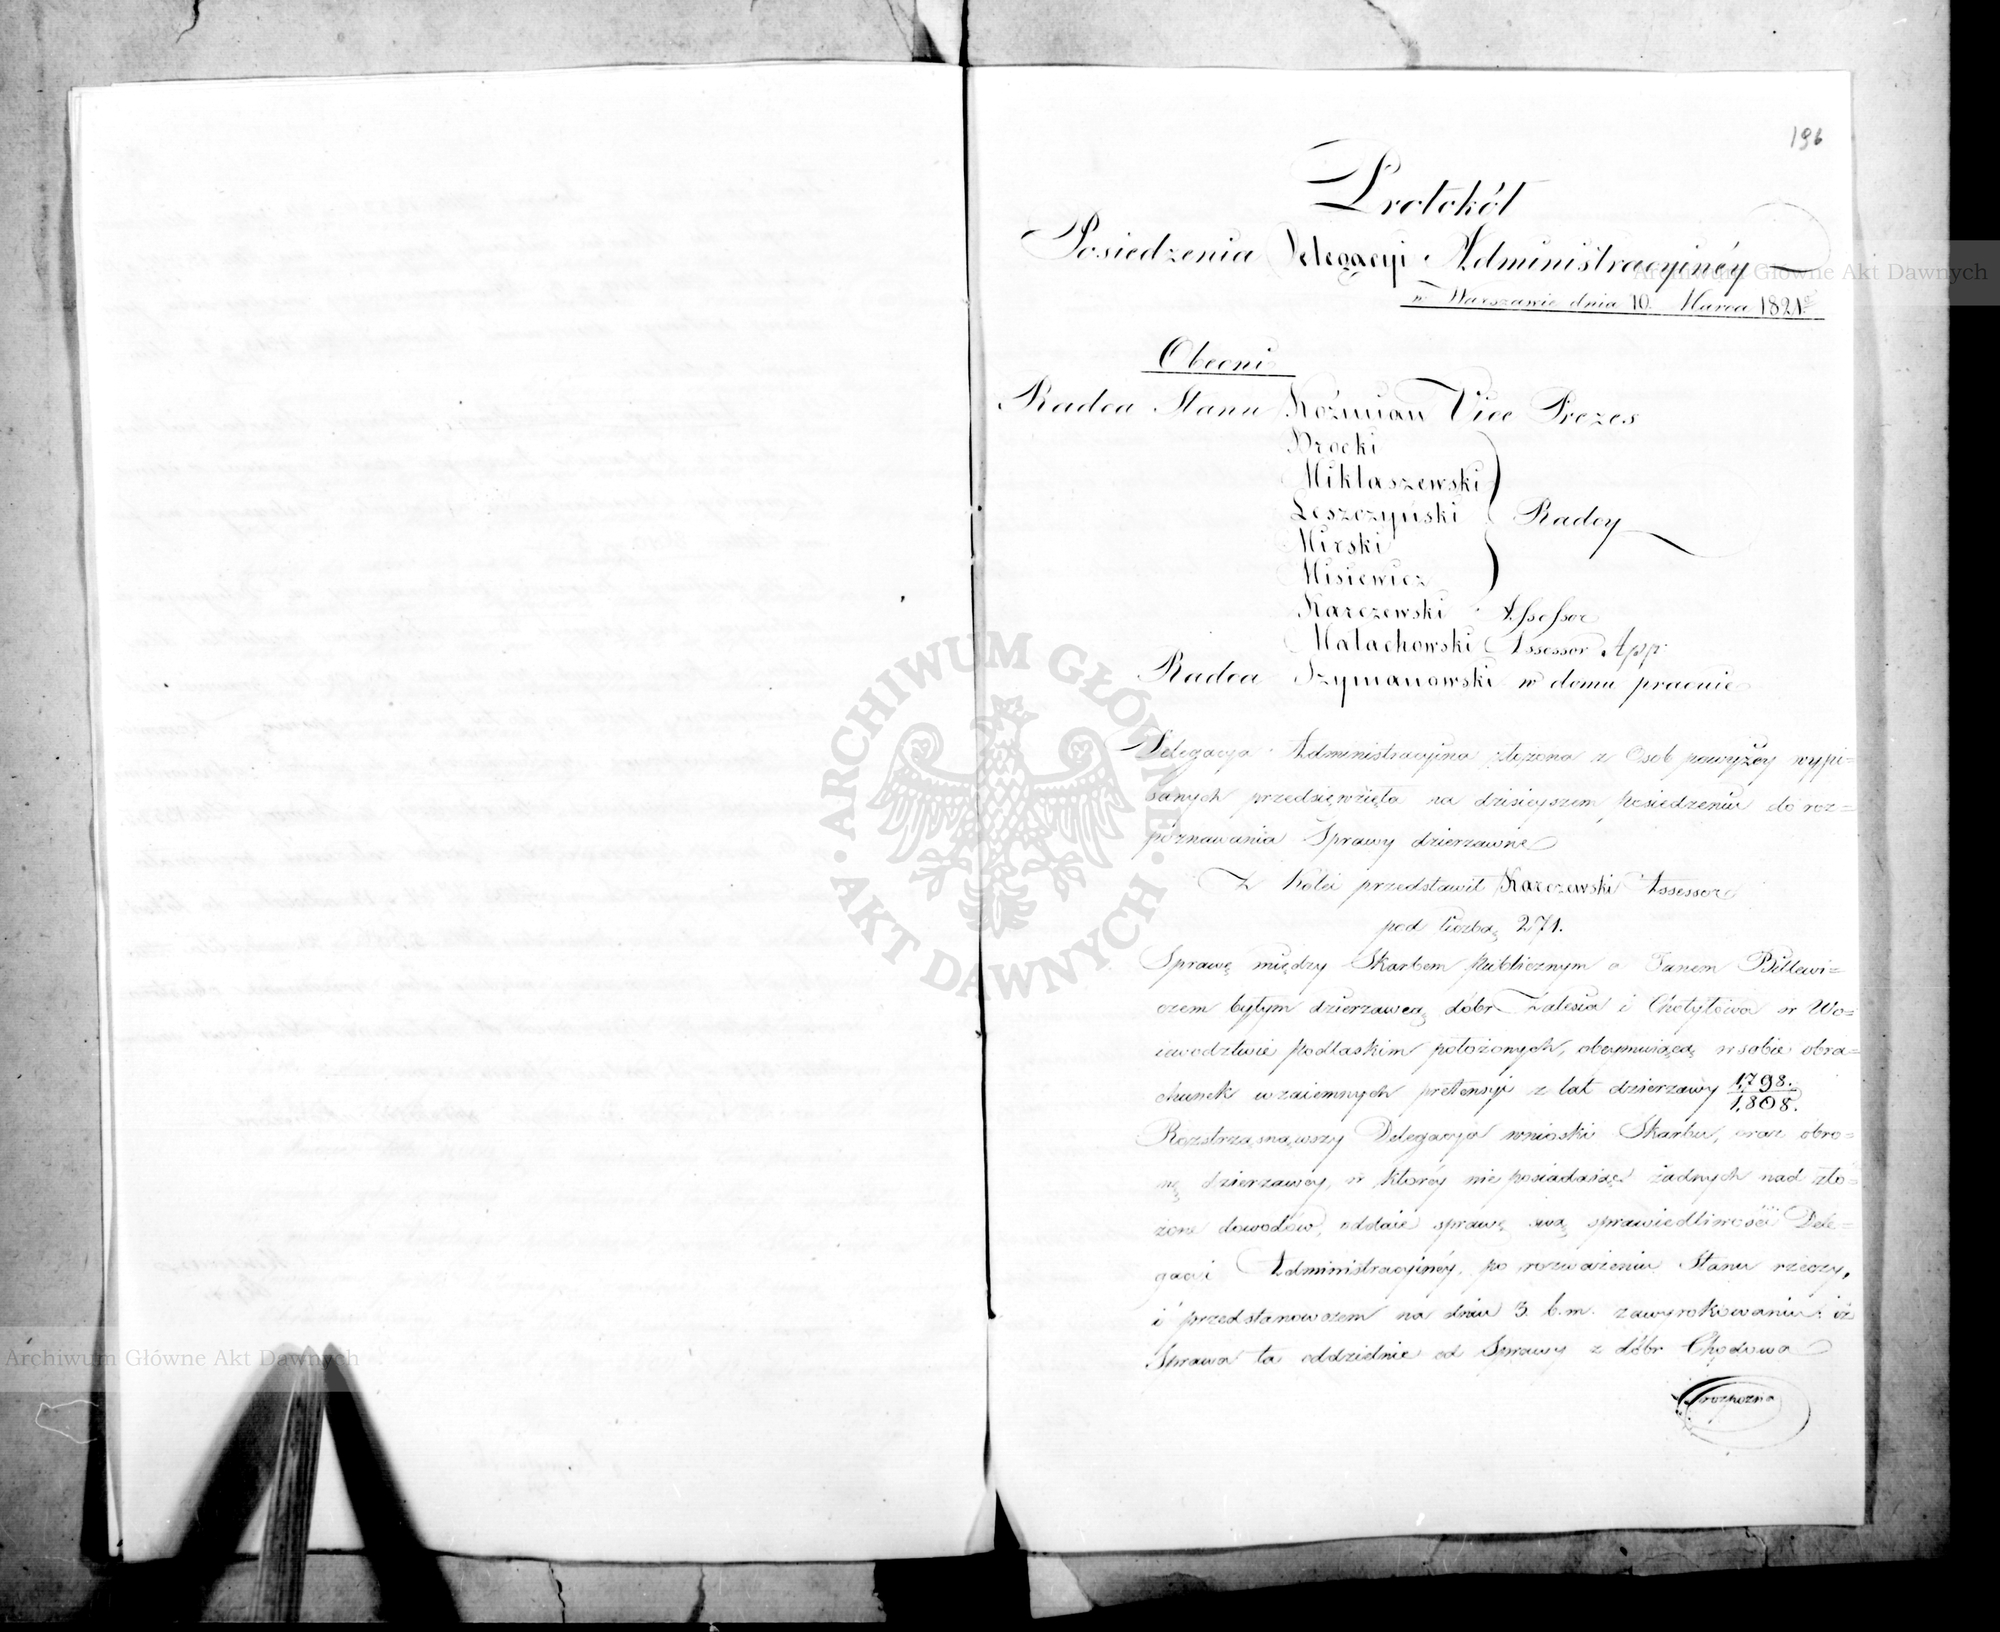 196
Protokół
Posiedzenia Delegacyi Administracyinéy
w Warszawie dnia 10. Marca 1821 r.
Obecni
Radca Stanu Koźmian Vice Prezes
Brocki
Miklaszewski
Leszczyński Radcy
Mirski
Misiewicz
Karczewski Assessor
Małachowski Assessor App.
Radca Szymanowski w domu pracuie
Delegacya Administracyina złożona z Osob powyżey wypi=
sanych przedsięwzięła na dzisieyszem posiedzeniu do roz=
poznawania Sprawy dzierzawne
Z Kolei przedstawił Karczewski Assessor
pod liczbą 271.
Sprawę między Skarbem Publicznym a Janem Billewi=
czem byłym dzierzawcą dóbr Zalesia i Chotyłowa w Wo=
iewodztwie Podlaskim położonych, obeymuiącą w sobie obra=
chunek wzaiemnych pretensyi z lat dzierzawy 1798./1808.
Rozstrząsnąwszy Delegacya wnioski Skarbu, oraz obro=
nę dzierzawcy, w któréy nie posiadaiąc żadnych nad zło=
żone dowodów, oddaie sprawę swą sprawiedliwości Dele=
gacyi Administracyinéy, po rozważeniu Stanu rzeczy,
i przedstanowczem na dniu 3. b.m. zawyrokowaniu iż
Sprawa ta oddzielnie od Sprawy z dóbr
rozpozna
Archiwum Główne Akt Dawnych
Archiwum Główne Akt Dawnych
ARCHIWUM GŁÓWNE · AKT DAWNYCH ·